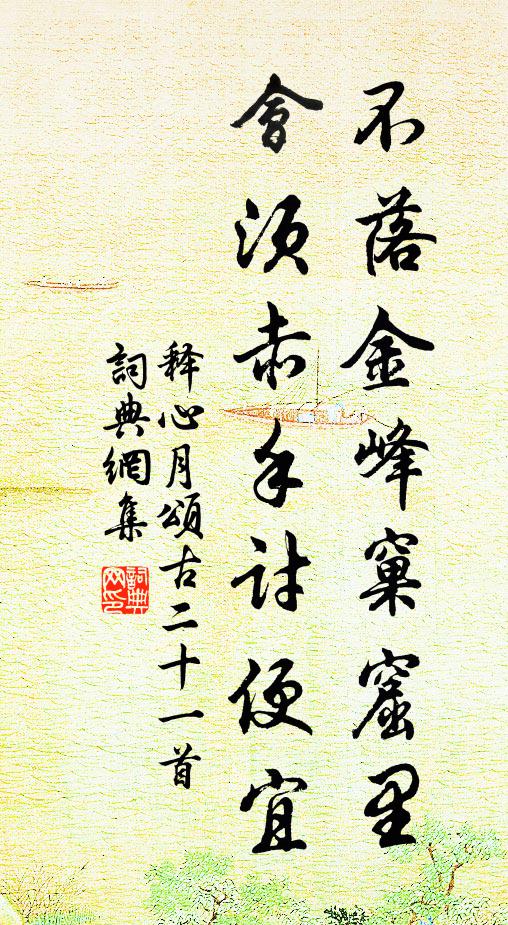 不落金峰窠窟里
會须赤手討便宜
释心月頌古二十一首
詞典網集
詞典
网印